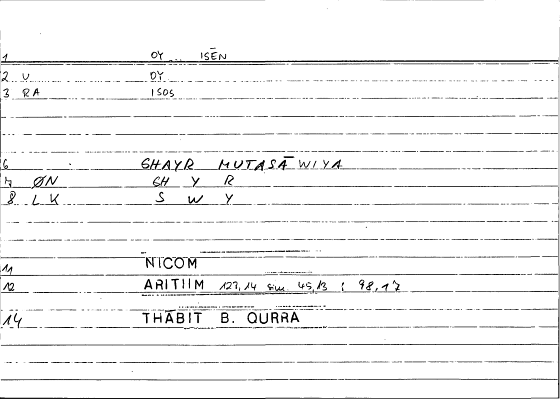 1 OY ISĒN
2 U OY
3 RA ISOS
6 GHAYR MUTASĀWIYA
7 ØN GH Y R
8 LK S W Y
11 NICOM
12 ARITIIM 127,14 sim 45,13 : 98,17
14 THĀBIT B. QURRA